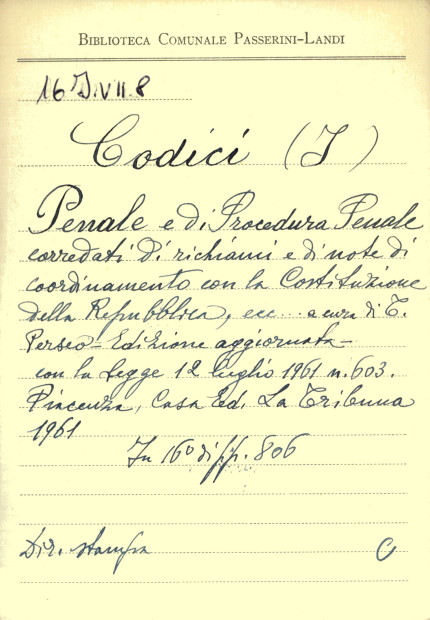 BIBLIOTECA COMUNALE PASSERINI-LANDI
16 J.VII.8
Codici (I)
Penale e di Procedura Penale
corredati di richiami e di note di
coordinamento con la Costituzione
della Repubblica, ecc... a cura di T.
Perseo - Edizione aggiornata -
con la legge 12 luglio 1961 n. 603.
Piacenza, Casa Ed. La Tribuna
1961
In 16° di pp. 806
Dir. stampa
C